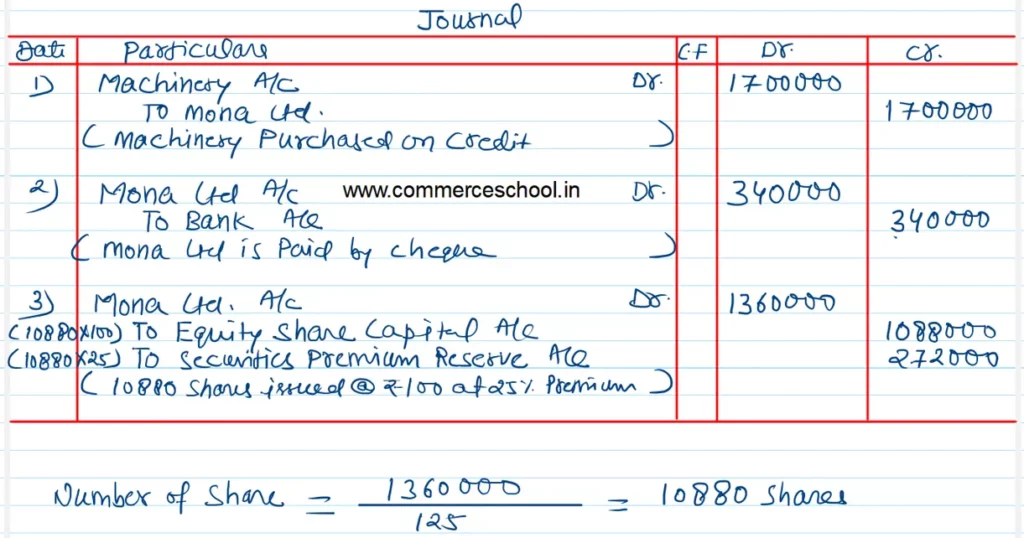 Journal
Date Particulars C.F Dr. Cr.
1) Machinery A/c Dr. 1700000
To Mona Ltd. 1700000
( Machinery Purchased on Credit )
2) Mona Ltd A/c www.commerceschool.in Dr. 340000
To Bank A/c 340000
( Mona Ltd is Paid by cheque )
3) Mona Ltd. A/c Dr. 1360000
(10880x100) To Equity Share Capital A/c 1088000
(10880x25) To Securities Premium Reserve A/c 272000
( 10880 Shares issued @ ₹100 at 25% Premium )
Number of Share = 1360000 = 10880 Shares
125